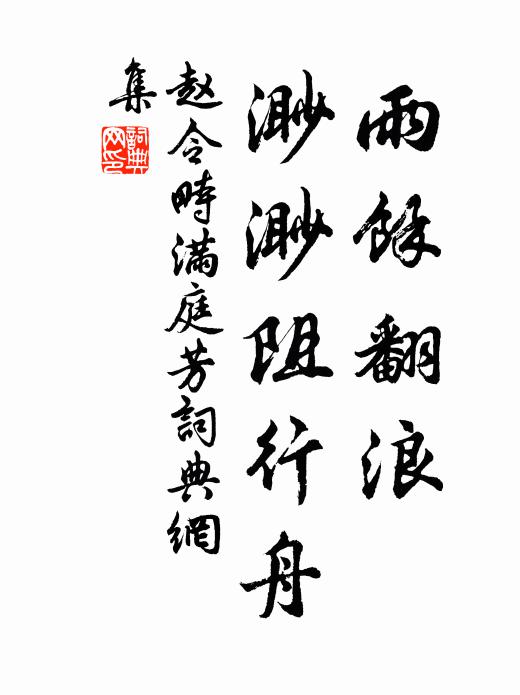 雨餘翻浪
渺渺阻行舟
赵令畤满庭芳詞典網
集
詞典网印